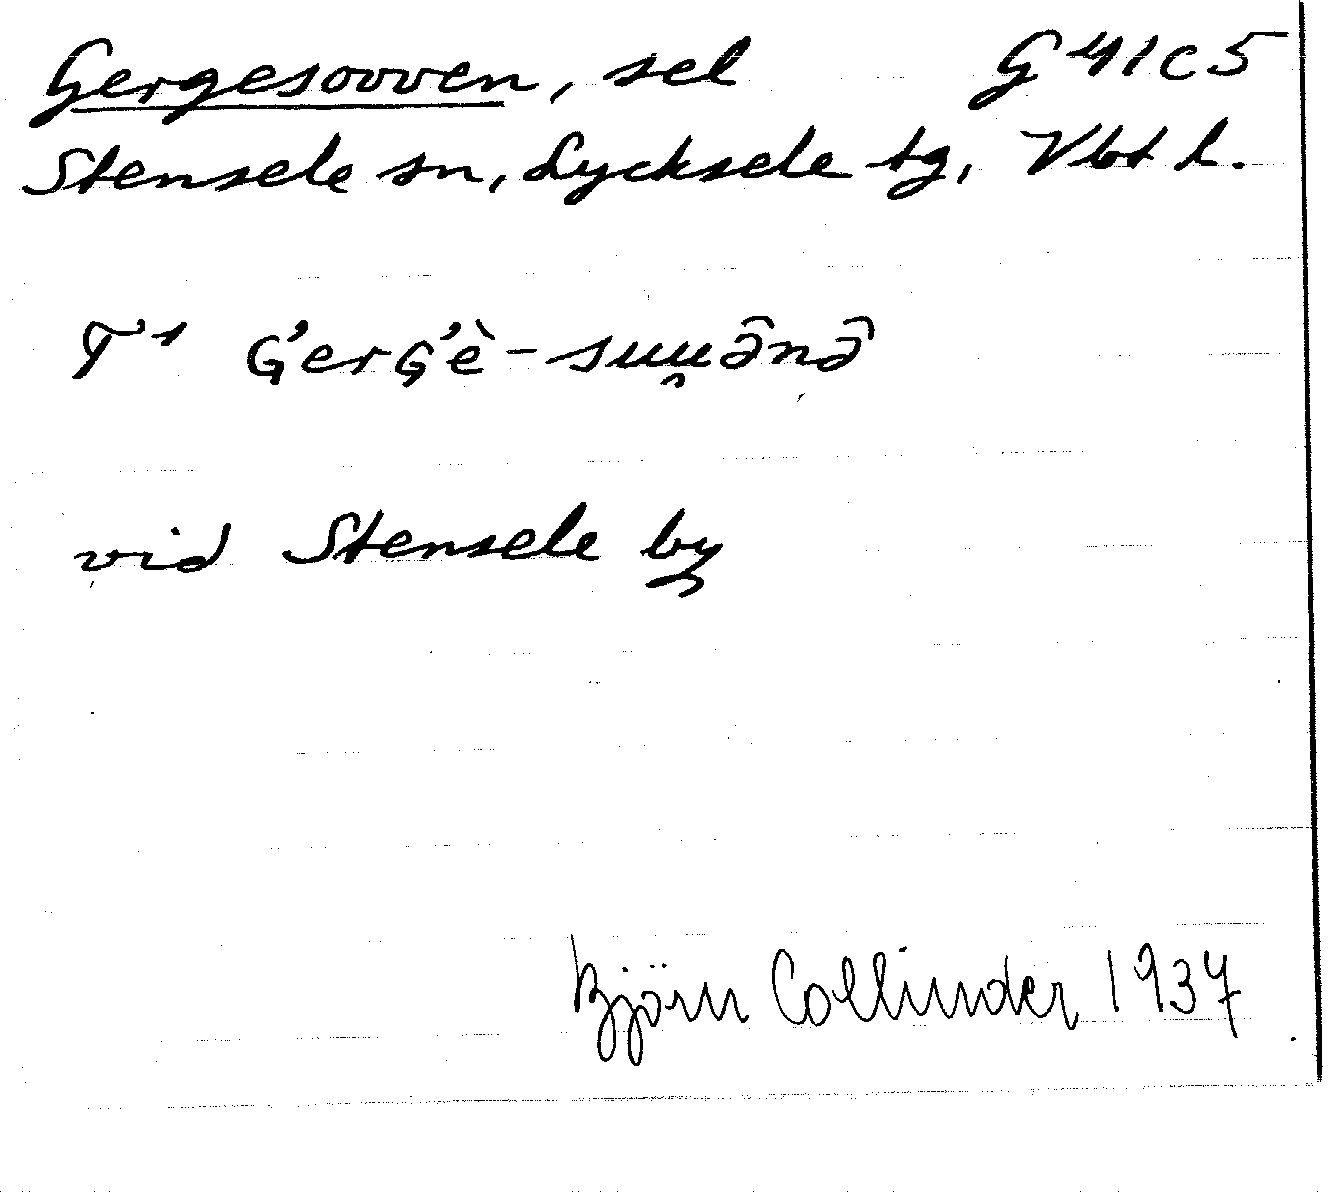 Gergesovven, sel G 41 c 5
Stensele sn, Lycksele tg, Vbt l.
T¹ G'erG'è-suu̯ə̑nə̑
vid Stensele by
Björn Collinder 1937